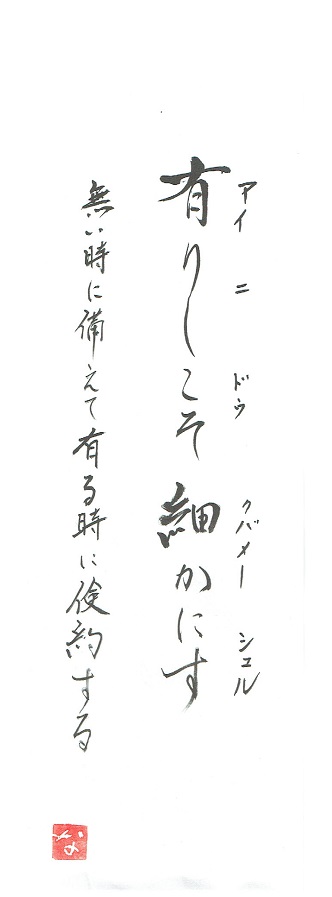 アイ ニ ドゥ クバメー シュル
有りしこそ細かにす
無い時に備えて有る時に倹約する